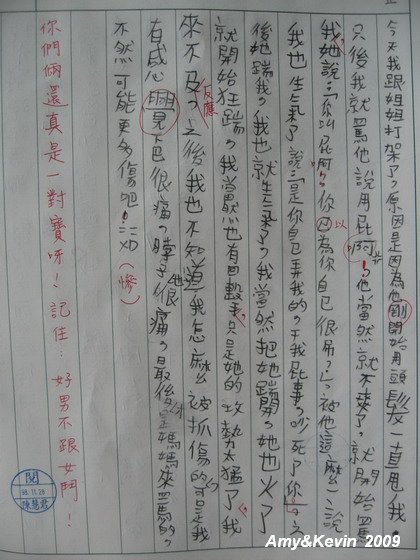 今天我跟姐姐打架了，原因是因為他剛開始用頭髮一直甩我
只後我就罵他說用屁啊！他當然就不爽了，就開始罵
我，她說：「你叫屁啊，你以為你自己很吊？」被他這麼一說
我也生氣了，說：「是你自己弄我的，干我屁事，吵死了你」之
後她踹我，我也就生氣了，我當然把她踹開，她也火了
就開始狂踹，我當然也有回擊，只是她的攻勢太猛了，我
來不及反應，之後我也不知道我怎麼被抓傷的，可是我
有感心，下巴很痛，脖子也很痛，最後是媽媽來罵的，
不然可能更多傷吧！XD（慘）
你們倆還真是一對寶呀！記住：好男不跟女鬥！
閱
98.11.26
陳慧君
Amy&Kevin 2009